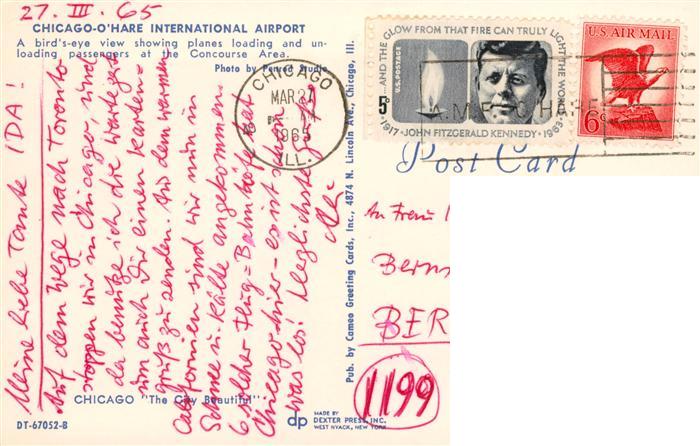 27. III. 65
CHICAGO-O'HARE INTERNATIONAL AIRPORT
A bird's-eye view showing planes loading and un-
loading passengers at the Concourse Area.
Photo by Penrod Studio
Meine liebe Tante IDA!
Auf dem Wege nach Toronto
stoppen wir in Chicago, und
da benütze ich die Wartezeit
um auch Dir einen Karten-
gruß zu senden. Aus dem warmen
Californien sind wir nun in
Schnee u. Kälte angekommen
6 solcher Flug=Bahnhöfe hat
Chicago hier - es ist schon
was los! Herzlichste Grüße
CHICAGO "The City Beautiful"
DT-67052-B
CHICAGO
MAR 27
1965
ILL.
Pub. by Cameo Greeting Cards, Inc., 4874 N. Lincoln Ave., Chicago, Ill.
dp
MADE BY
DEXTER PRESS, INC.
WEST NYACK, NEW YORK
...AND THE GLOW FROM THAT FIRE CAN TRULY LIGHT THE WORLD
U.S. POSTAGE
5¢
1917 · JOHN FITZGERALD KENNEDY · 1963
U.S. AIR MAIL
6¢
Post Card
An Frau
Bern
BER
1199